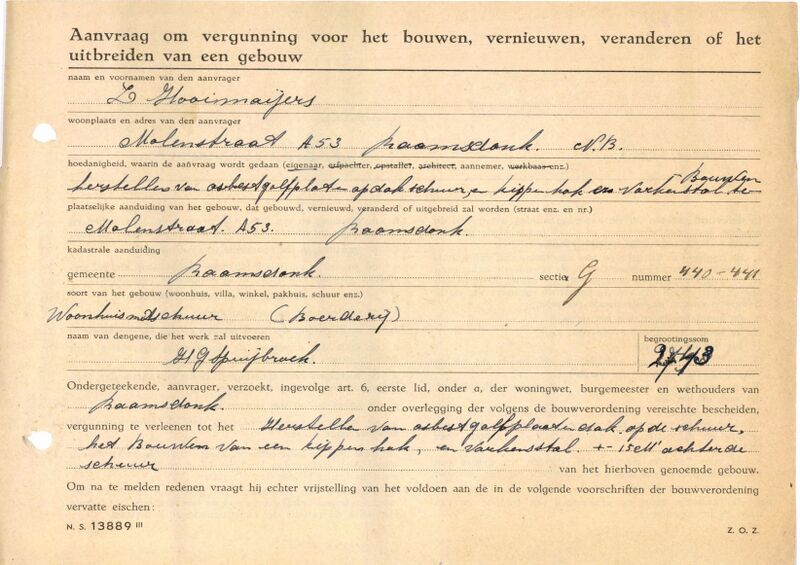 Aanvraag om vergunning voor het bouwen, vernieuwen, veranderen of het
uitbreiden van een gebouw
naam en voornamen van den aanvrager
L Hooimaijers
woonplaats en adres van den aanvrager
Molenstraat A53 Raamsdonk. N.B.
hoedanigheid, waarin de aanvraag wordt gedaan (eigenaar, erfpachter, opstaller, architect, aannemer, werkbaas enz.)
Bouwen
herstellen van asbestgolfplaten op dak schuur, en kippenhok en varkenstal te
plaatselijke aanduiding van het gebouw, dat gebouwd, vernieuwd, veranderd of uitgebreid zal worden (straat enz. en nr.)
Molenstraat. A53. Raamsdonk.
kadastrale aanduiding
gemeente Raamsdonk. sectie G nummer 440-441
soort van het gebouw (woonhuis, villa, winkel, pakhuis, schuur enz.)
Woonhuis met schuur (Boerderij)
naam van dengene, die het werk zal uitvoeren
begrootingssom
H G Spuijbroek.
Ondergeteekende, aanvrager, verzoekt, ingevolge art. 6, eerste lid, onder a, der woningwet, burgemeester en wethouders van
Raamsdonk. onder overlegging der volgens de bouwverordening vereischte bescheiden,
vergunning te verleenen tot het Herstellen van asbestgolfplaten dak op de schuur,
het Bouwen van een kippenhok, en Varkensstal. +- 15 M achter de
schuur
van het hierboven genoemde gebouw.
Om na te melden redenen vraagt hij echter vrijstelling van het voldoen aan de in de volgende voorschriften der bouwverordening
vervatte eischen:
N. S. 13889 III
Z. O. Z.